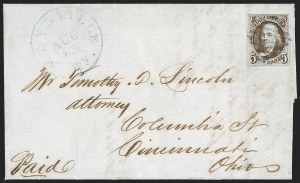 AUG
5
Mr Timothy D. Lincoln
attorney
Columbia St
Cincinnati
Paid
Ohio